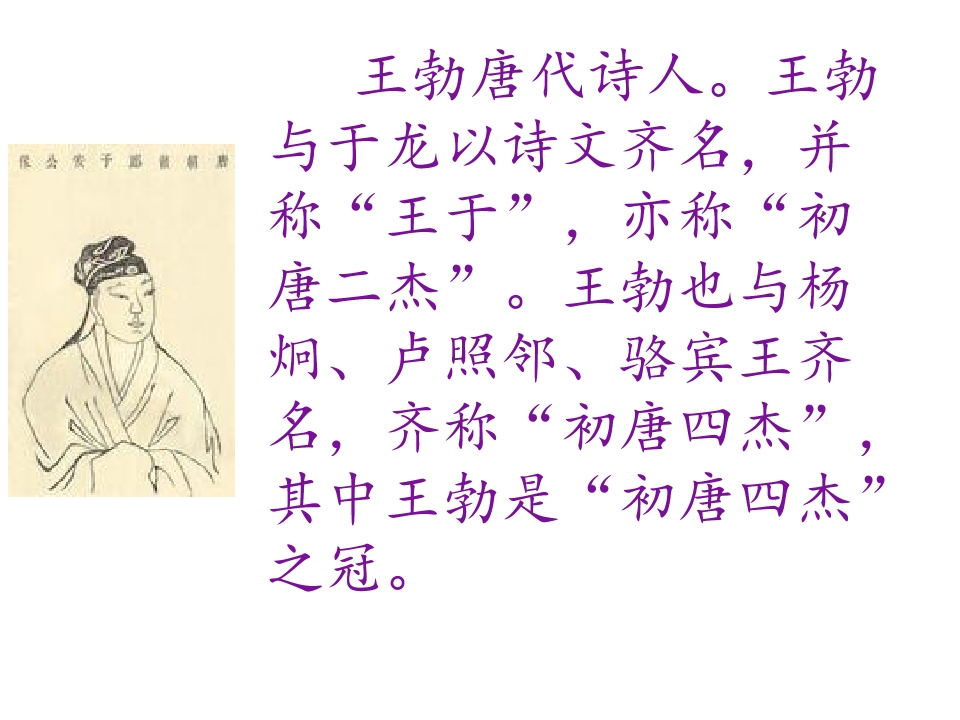 王勃唐代诗人。王勃
与于龙以诗文齐名，并
称“王于”，亦称“初
唐二杰”。王勃也与杨
炯、卢照邻、骆宾王齐
名，齐称“初唐四杰”，
其中王勃是“初唐四杰”
之冠。